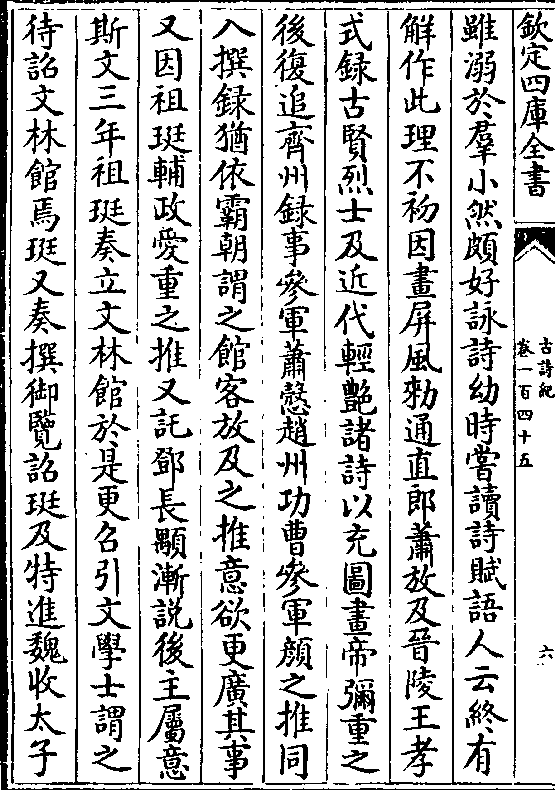 欽定四庫全書
古詩紀
卷一百四十五
六
雖溺於羣小然頗好詠詩幼時嘗讀詩賦語人云終有
解作此理不初因畫屏風勑通直郎蕭放及晉陵王孝
式録古賢烈士及近代輕艶諸詩以充圖畫帝彌重之
後復追齊州録事參軍蕭慤趙州功曹參軍顔之推同
入撰録猶依霸朝謂之館客放及之推意欲更廣其事
又因祖珽輔政愛重之推又託鄧長顒漸説後主屬意
斯文三年祖珽奏立文林館於是更召引文學士謂之
待詔文林館焉珽又奏撰御覽詔珽及特進魏收太子